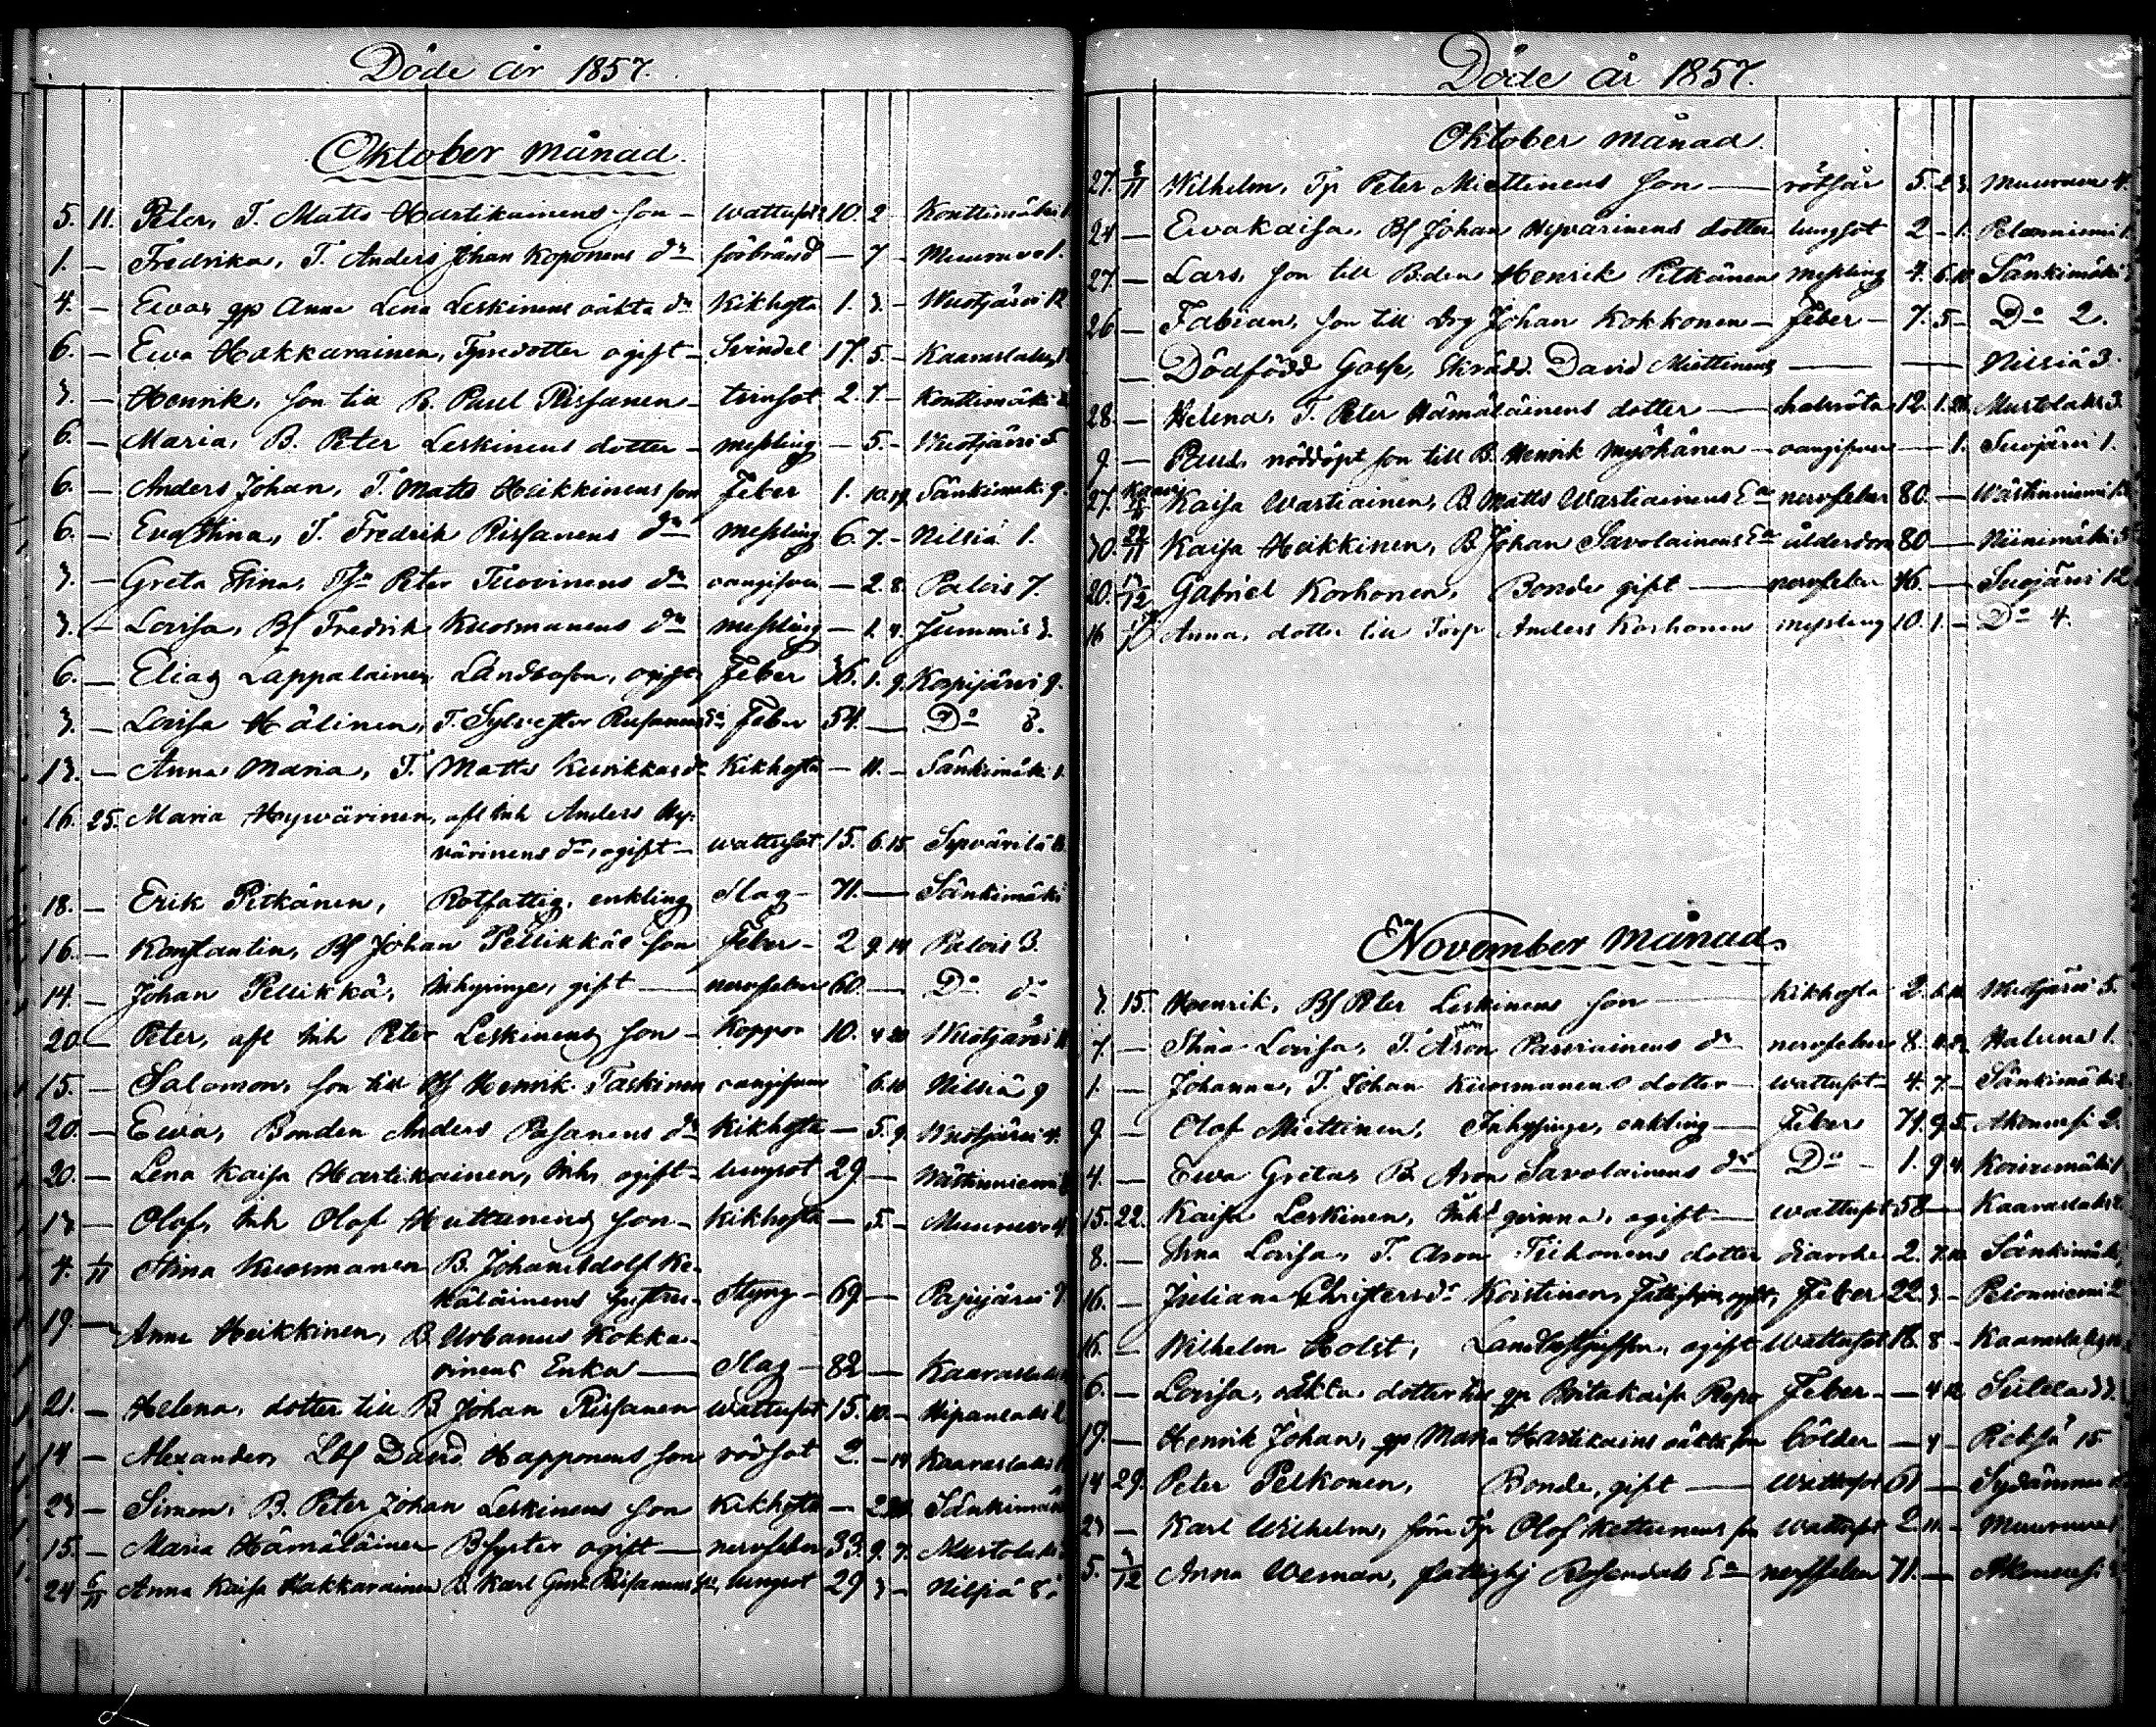 Döde år 1857.
Oktober månad.
5. 11. Peter, T. Matts Hartikainens son - wattusot 10. 2 - Konttimäki
1. - Fredrika, T. Anders Johan Koponens dr förbränd - 7 - Muuruves 1.
4. - Ewa, qp Anna Lena Leskinens oäkta dr Kikhosta 1. 3. - Wuotjärvi 12
6. - Ewa Hakkarainen, Tpredotter ogift - Svindel 17. 5. - Kaaraslaks
3. - Henrik, son till B. Paul Rissanen - trinsot 2. 7. - Konttimäki
6. - Maria, B. Peter Leskinens dotter - messling - 5. - Wuotjärvi 5
6. - Anders Johan, T. Matts Heikkinens son Feber 1. 10. 19. Sänkimäki 9.
6. - Eva Stina, T. Fredrik Rissanens dr messling 6. 7. - Nilsiä 1.
3. - Greta Stina, Peter Tuovinens dr oangifven - 2. 8. Palois 7.
3. - Lovisa, Bf Fredrik Kuosmanens dr messling - 1. 4. Jummis 3.
6. - Elias Lappalainen Landbosson, ogift Feber 36. 1. 9. Korpijärvi 9.
3. - Lovisa Hälinen, T. Sylvester Rissanens Ea Feber 54. - Do 8.
13. - Anna Maria, T. Matts Kuikkas dr Kikhosta - 11. - Sänkimäki 1.
16. 25. Maria Hywärinen, afl Inh Anders Hy-
värinens dr, ogift - wattusot 15. 6. 15. Syvärilä
18. - Erik Pitkänen, Rotfattig, enkling Slag - 71. - Sänkimäki
16. - Konstantin, Bf Johan Pellikkäs son Feber - 2 9. 14 Palois 3.
14. - Johan Pellikkä, Inhysinge, gift - nervfeber 60. - Do do
20. - Peter, afl Inh Peter Leskinens son - Koppor 10. 4 20 Wuotjärvi
15. - Salomon, son till Bf Henrik Taskinen oangifven 6. 10 Nilsiä 9
20. - Ewa, Bonden Anders Pasanens dr Kikhosta - 5. 9. Wuotjärvi 4.
20. - Lena Kaisa Hartikainen, Inh, ogift - lungsot 29 - Wästinniemi
13 - Olof, Inh Olof Huttunens son - Kikhosta - 5. - Muuruves
4. 1/11 Stina Kuosmanen B. Johan Adolf Ke-
käläinens hustru - Styng - 69 - Pajujärvi
19. - Anna Heikkinen, B. Urbanus Kokka-
rinens Enka - Slag - 82 - Kaaraslaks
21. - Helena, dotter till B. Johan Rissanen Wattusot 15. 10. - Nipanlaks
14 - Alexander, Lbf David Happonens son rödsot 2. - 14 Kaaraslaks
23 - Simon, B. Peter Johan Leskinens son Kikhosta - Sänkimäki
15. - Maria Hämäläinen Bsyster ogift - nervfeber 33. 9. 7. Murtolaks
24 6/11 Anna Kaisa Hakkarainen B. Karl Gust. Rissanens lungsot 29 3 - Nilsiä 8.
Döde år 1857.
Oktober månad.
27. 8/11 Wilhelm, Tp Peter Miettinens son - rötsår 5. 2 3. Muuruves 4.
24 - Ewakaisa, Bf Johan Hyvärinens dotter lungsot 2 - 1. Pelonniemi
27. - Lars, son till B.den Henrik Pitkänen messling 4. 6. 10 Sänkimäki
26 - Fabian, son till Johan Kokkonen - Feber - 7. 5 - Do 2.
- Dödfödd Gosse, Skrädd. David Miettinens - - Nilsiä 3.
28. - Helena, T. Peter Hämäläinens dotter - halsröta 12. 1. Murtolaks 3.
9 - Paul, nöddöpt son till B. Henrik Myöhänen - oangifven - 1. Suojärvi 1.
27. Kaisa Wartiainen, B. Matts Wartiainens Ea nervfeber 80 - Wästinniemi
30. 22/11 Kaisa Hakkinen, B. Johan Savolainens Ea ålderdom 80 - Niinimäki
20. /12 Gabriel Korhonen, Bonde gift - nervfeber 46. - Suojärvi 12
16 Anna, dotter till Torp Anders Korhonen messling 10. 1. - Do 4.
November månad.
3. 15. Henrik, Bf Peter Leskinens son - Kikhosta 2. Wuotjärvi 5.
7. - Stina Lovisa, T. Aron Parviainens dr nervfeber 8. Haluna 1.
1. - Johanna, T. Johan Kuosmanens dotter - wattusot - 4. 7. - Sänkimäki
9 - Olof Miettinen, Inhysinge, enkling - Feber 71. 9. 5. Akonvesi 2.
4. - Ewa Greta, B. Aron Savolainens dr Do - 1. 9. 4. Konttimäki
15. 22. Kaisa Leskinen, Inhs qvinna, ogift - wattusot 58 - Kaaraslaks
8. - Anna Lovisa, T. Aron Tiihonens dotter diarrhe 2. 7. 10 Sänkimäki
16. - Juliana Christersdr Korstinen, ogift, Feber 22. 3. - Pelonniemi 2
16. - Wilhelm Holst, ogift Wattusot 18. 8 - Kaaraslaks
6. - Lovisa, oäkta dotter till qp Britakaisa Repo Feber - - 4 12. Sulila
19. - Henrik Johan, qp Maria Hartikains oäkta son bölder - 4 - 15.
14 29. Peter Pelkonen, Bonde, gift - Wattusot 61 - Sydänmaa
23 - Karl Wilhelm, förre Tp Olof Kettunens son Wattusot 2. 11. - Muuruves
5. 3/12 Anna Weman, fattighj Rosendals Ea - nervfeber 71. - Akonvesi